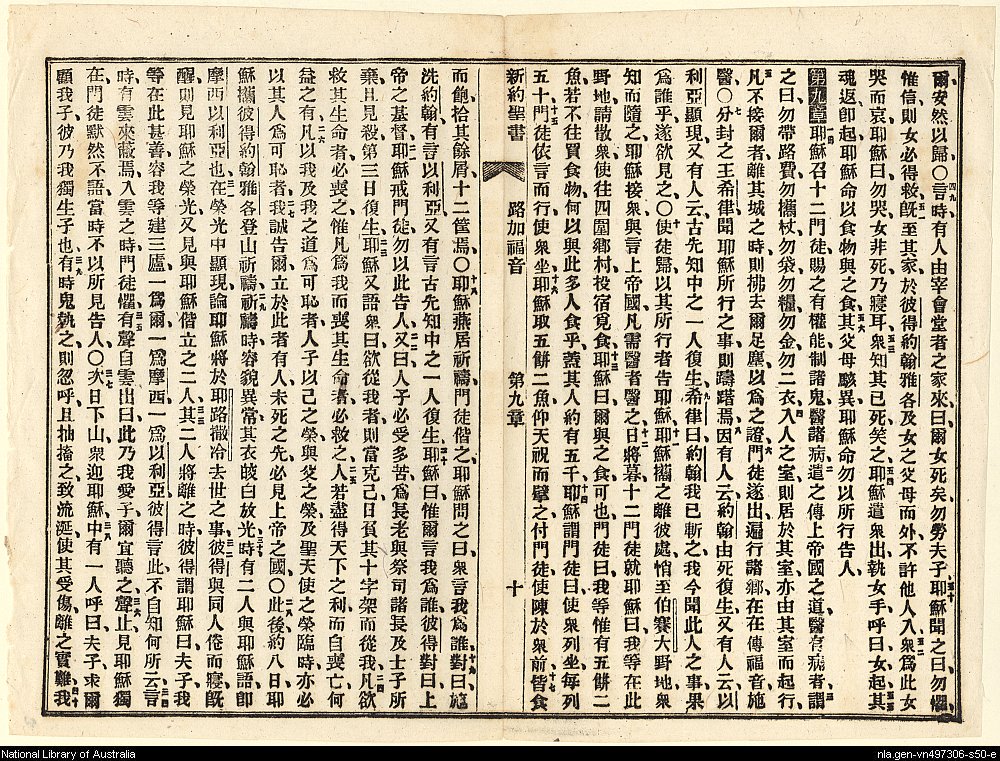 爾安然以歸○言時有人由宰會堂者之家來曰爾女死矣勿勞夫子耶穌聞之曰勿懼
惟信則女必得救旣至其家於彼得約翰雅各及女之父母而外不許他人入衆爲此女
哭而哀耶穌曰勿哭女非死乃寢耳衆知其已死笑之耶穌遣衆出執女手呼曰女起其
魂返卽起耶穌命以食物與之食其父母駭異耶穌命勿以所行告人
第九章耶穌召十二門徒賜之有權能制諸鬼醫諸病遣之傳上帝國之道醫有病者謂
之曰勿帶路費勿攜杖勿袋勿糧勿金勿二衣入人之室則居於其室亦由其室而起行
凡不接爾者離其城之時則拂去爾足塵以爲之證門徒遂出遍行諸鄉在在傳福音施
醫○分封之王希律聞耶穌所行之事則躊躇焉因有人云約翰由死復生又有人云以
利亞顯現又有人云古先知中之一人復生希律曰約翰我已斬之我今聞此人之事果
爲誰乎遂欲見之○使徒歸以其所行者告耶穌耶穌攜之離彼處悄至伯賽大野地衆
知而隨之耶穌接衆與言上帝國凡需醫者醫之日將暮十二門徒就耶穌曰我等在此
野地請散衆使往四圍鄉村投宿覓食耶穌曰爾與之食可也門徒曰我等惟有五餅二
魚若不往買食物何以與此多人食乎蓋其人約有五千耶穌謂門徒曰使衆列坐每列
五十門徒依言而行使衆坐耶穌取五餅二魚仰天祝而擘之付門徒使陳於衆前皆食
新約聖書 路加福音 第九章 十
而飽拾其餘屑十二筐焉○耶穌燕居祈禱門徒偕之耶穌問之曰衆言我爲誰對曰施
洗約翰有言以利亞又有言古先知中之一人復生耶穌曰惟爾言我爲誰彼得對曰上
帝之基督耶穌戒門徒勿以此告人又曰人子必受多苦爲長老與祭司諸長及士子所
棄且見殺第三日復生耶穌又語衆曰欲從我者則當克己日負其十字架而從我凡欲
救其生命者必喪之惟凡爲我而喪其生命者必救之人若盡得天下之利而自喪亡何
益之有凡以我及我之道爲可恥者人子以己之榮與父之榮及聖天使之榮臨時亦必
以其人爲可恥者我誠告爾立於此者有人未死之先必見上帝之國○此後約八日耶
穌攜彼得約翰雅各登山祈禱祈禱時容貌異常其衣皎白放光時有二人與耶穌語卽
摩西以利亞也在榮光中顯現論耶穌將於耶路撒冷去世之事彼得與同人倦而寢旣
醒則見耶穌之榮光又見與耶穌偕立之二人其二人將離之時彼得謂耶穌曰夫子我
等在此甚善容我等建三廬一爲爾一爲摩西一爲以利亞彼得言此不自知何所云言
時有雲來蔽焉入雲之時門徒懼有聲自雲出曰此乃我愛子爾宜聽之聲止見耶穌獨
在門徒默然不語當時不以所見告人○次日下山衆迎耶穌中有一人呼曰夫子求爾
顧我子彼乃我獨生子也有時鬼執之則忽呼且抽搐之致流涎使其受傷離之實難我
National Library of Australia
nla.gen-vn497306-s50-e